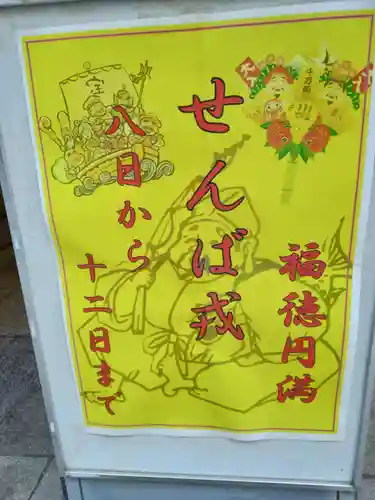 福徳円満
せんば戎
八日から
十二日まで